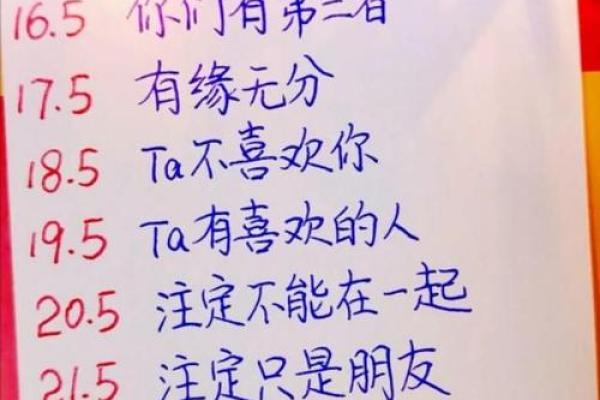 16.5 你们有第三者
17.5 有缘无分
18.5 Ta不喜欢你
19.5 Ta有喜欢的人
20.5 注定不能在一起
21.5 注定只是朋友